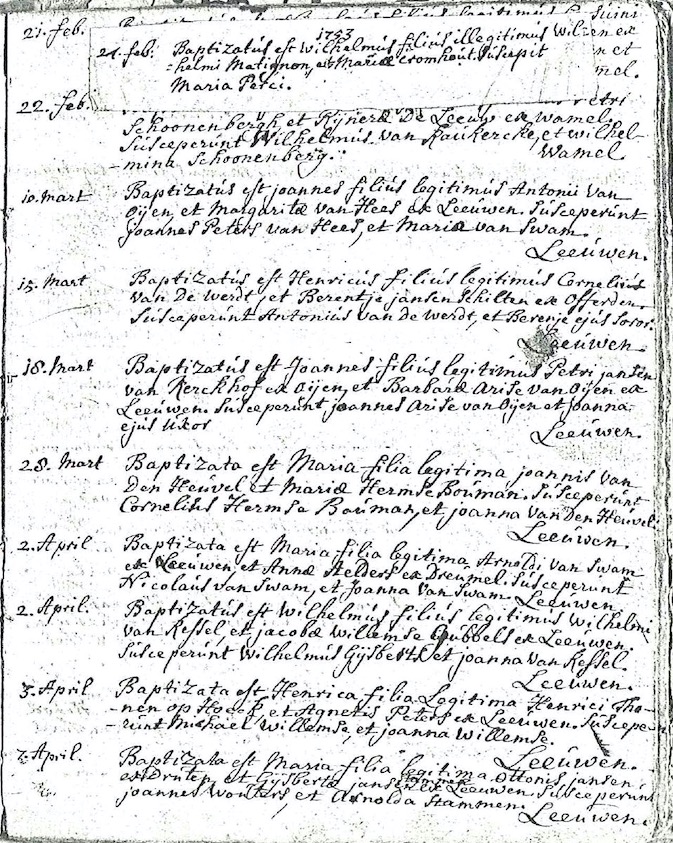 21. feb.
1753
21. feb. Baptizatús est Wilhelmús filiús illegitimús Wil-
-helmi Matignon, et Mariæ Cromhout. Súscepit
Maria Perci.
22. feb.
Schoonenbergh, et Rijneræ De Leeuw ex Wamel.
Súsceperúnt Wilhelmús van Raúkercke, et wilhel-
mina Schoonenberg. Wamel
10. Mart Baptizatús est joannes filiús legitimús Antonii van
Oijen, et Margaritæ van Hees ex Leeúwen. súsceperúnt
joannes Peters van Hees, et Maria van Swam.
Leeúwen.
15. Mart Baptizatús est Henricús filiús legitimús Cornelii
van De Werdt, et Berentje jansen Schilten ex Offerden.
Súsceperúnt Antoniús van de werdt, et Berenje ejús soror.
Leeúwen
18. Mart Baptizatús est Joannes filiús legitimús Petri jansen
van Kerckhof ex Oijen, et Barbaræ Arise van Oijen ex
Leeúwen. súsceperúnt joannes Arise van Oijen et joanna
ejús úxor Leeúwen.
28. Mart Baptizata est Maria filia legitima joannis van
Den Heúvel et Mariæ Hermse Boúman. súsceperúnt
Corneliús Hermse Boúman, et joanna van Den Heúvel
Leeúwen.
2. April Baptizata est Maria filia legitima Arnoldi van Swam
ex Leeúwen, et Annæ Aelders ex Dreúmel. súsceperunt
Nicolaús van Swam, et joanna van Swam. Leeúwen
2. April. Baptizatús est Wilhelmús filiús legitimús Wilhelmi
van Kessel, et jacobæ willemse Gubbels ex Leeúwen.
súsceperúnt Wilhelmús Gijsberts et joanna van Kessel.
Leeúwen.
3. April Baptizata est Henrica filia Legitima Henrici Tho-
-nen op Hoeck et Agnetis Peters ex Leeúwen. súscepe-
-rúnt Michael Willemse, et joanna Willemse.
Leeúwen.
7. April. Baptizata est Maria filia legitima Ottonis jansen
ex Drúten, et Gijsbertæ jansen ex Leeúwen. súsceperúnt
joannes Woúters, et Arnolda Stammen.
Leeúwen.